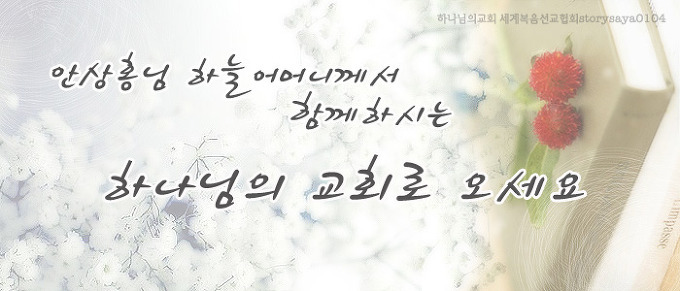 하나님의교회 세계복음선교협회storysaya0104
안상홍님 하늘어머니께서
함께하시는
하나님의 교회로 오세요
Umpasse